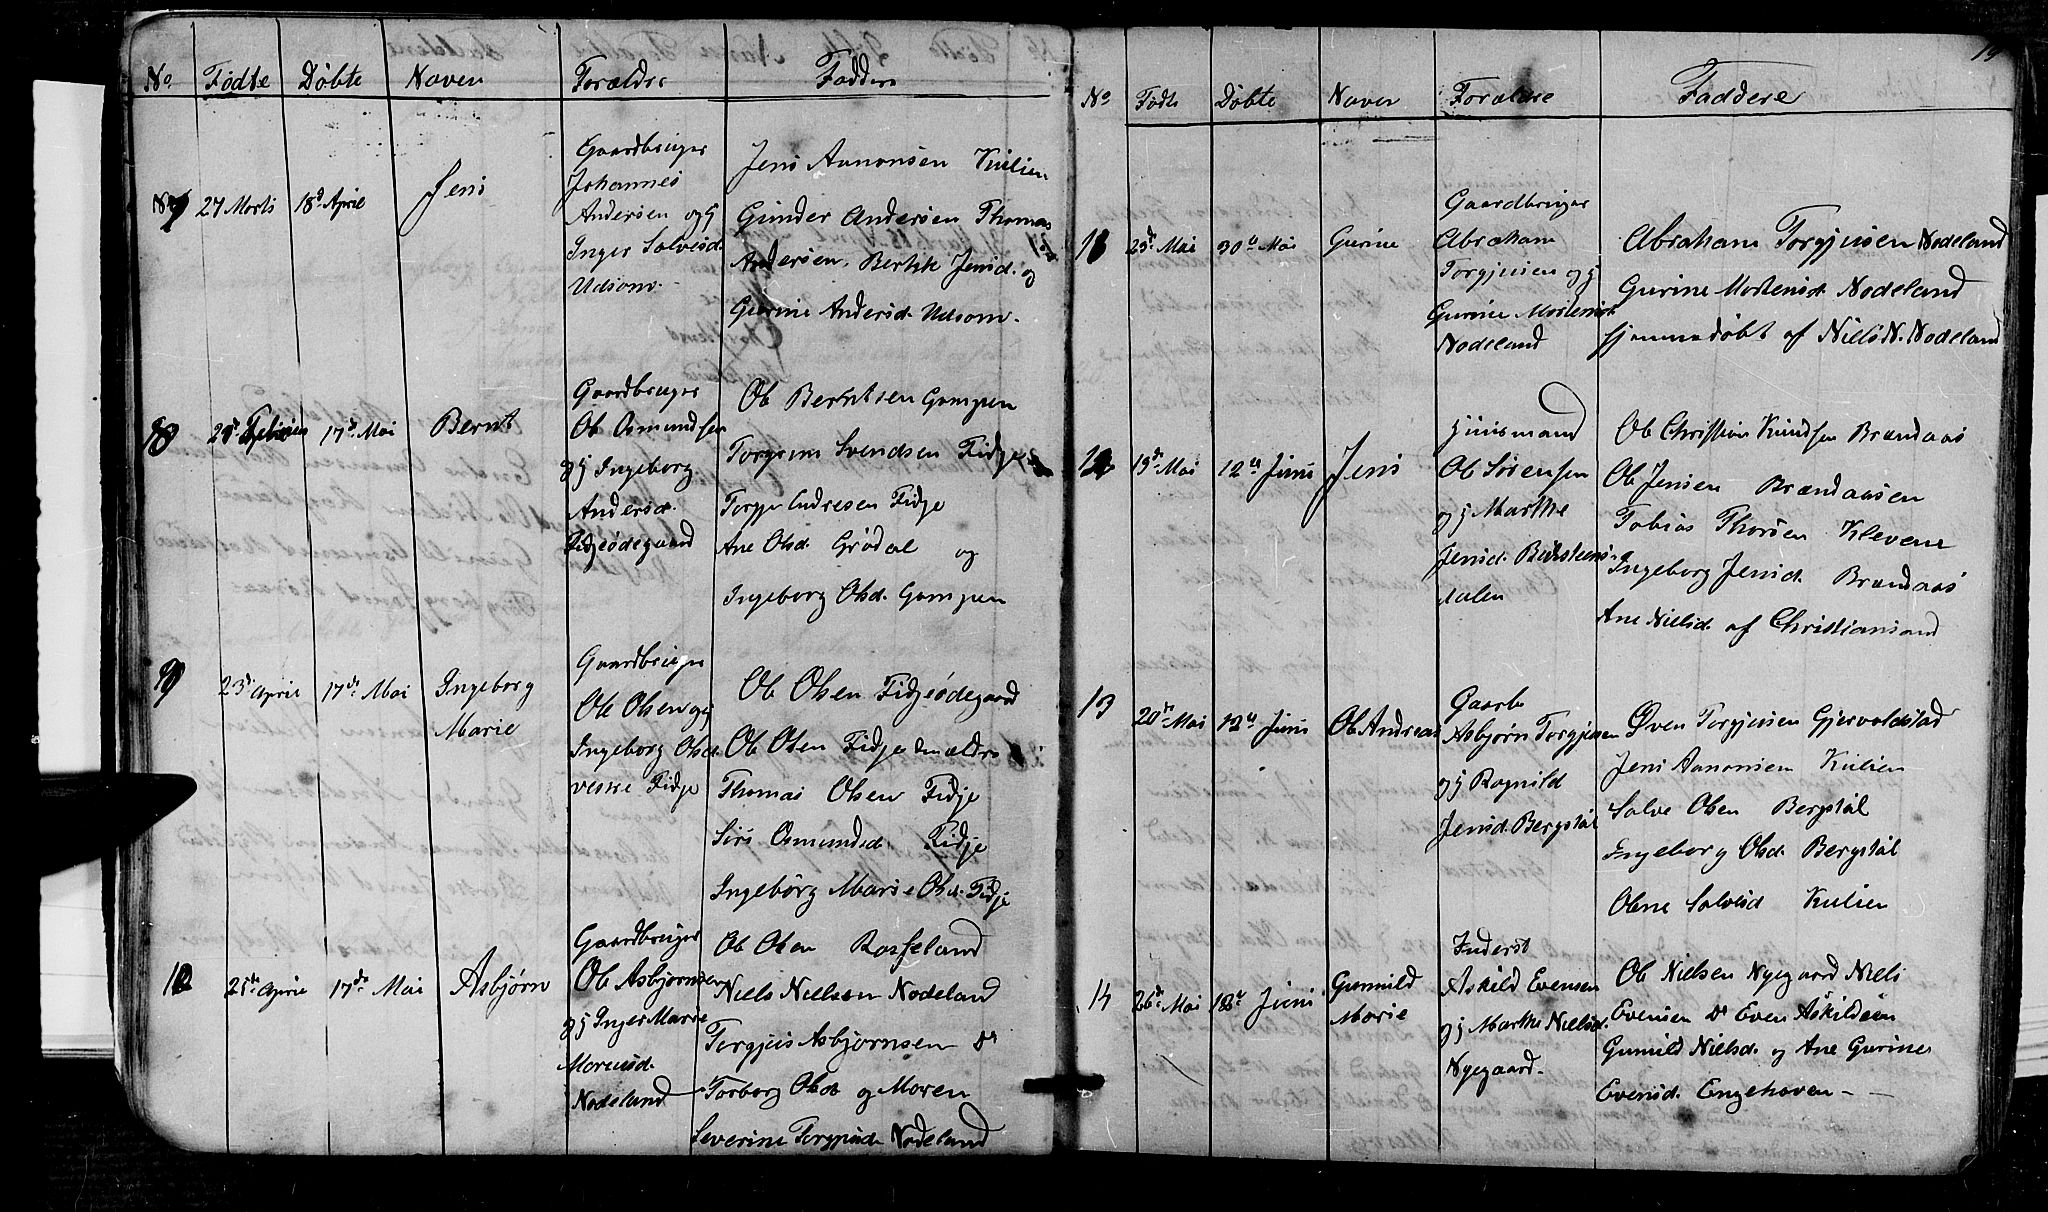 No. Fødte Døbte Naven Forældre Faddere
7 27 Marts 18d April Jens
Gaardbruger
Johannes
Andersen og Hj
Inger Salvesd.
Udsom.
Jens Aanonsen Kulien
Gunder Andersen Thomas
Andersen, Berthe Jensd. og
Gurine Andersd. Udsom.
8 17de Mai Bernt
Gaardbruger
Ole Osmundsen
og Hj Ingeborg
Andersd.
Fidjeødegaard
Ole Berntsen Gampen
Svendsen Fidje
Torgje Endresen Fidje
Ane Olsd. Grødal og
Ingeborg Olsd. Gampen
9 23de April 17de Mai Ingeborg
Marie
Gaardbruger
Ole Olsen og Hj
Ingeborg Olsd.
veske Fidje
Ole Olsen Fidjeødegaard
Ole Olsen Fidje den ældre
Thomas Olsen Fidje
Siri Osmundsd. Fidje
Ingeborg Marie Olsd. Fidje
10 21de April 17de Mai Asbjørn
Gaardbruger
Ole Asbjørnsen
og Hj Inger Marie
Nodeland
Ole Olsen Rosseland
Niels Nielsen Nodeland
Torgjus Asbjørnsen do
Torborg Olsd. og Maren
Severine Torgjusd. Nodeland
19
No Fødte Døbte Naven Forældre Faddere
11 23de Mai 30te Mai Gurine
Gaardbruger
Abraham
Torgjusen og Hj
Gurine Mortensd.
Nodeland
Abraham Torgjusen Nodeland
Gurine Mortensd. Nodeland
hjemmedøbt af Niels N. Nodeland
12 19de Mai 12te Juni Jens
Huusmand
Ole Sørensen
og Hj Marthe
Jensd.
dalen
Ole Christian Knudsen Brændaas
Ole Jensen Brændaasen
Tobias Thorsen Klevene
Ingeborg Jensd. Brændaas
Ane Nielsd. af Christiansand
13 20de Mai 12te Juni Ole Andreas
Gaarbr
Asbjørn Torgjusen
og Hj Ragnild
Jensd. Bergstøl
Even Torgjusen Gjervoldstad
Jens Aanonsen Kulien
Salve Olsen Bergstøl
Ingeborg Olsd. Bergstøl
Olene Salvesd Kulien
14 26de Mai 12te Juni Gunnild
Marie
Inderst
Askild Evensen
og Hj Marthe Nielsd.
Nyegaard.
Ole Nielsen Nyegaard Niels
Evensen do Even Askildsen
Gunnild Nielsd. og Ane Gurine
Evensd. Engehaven